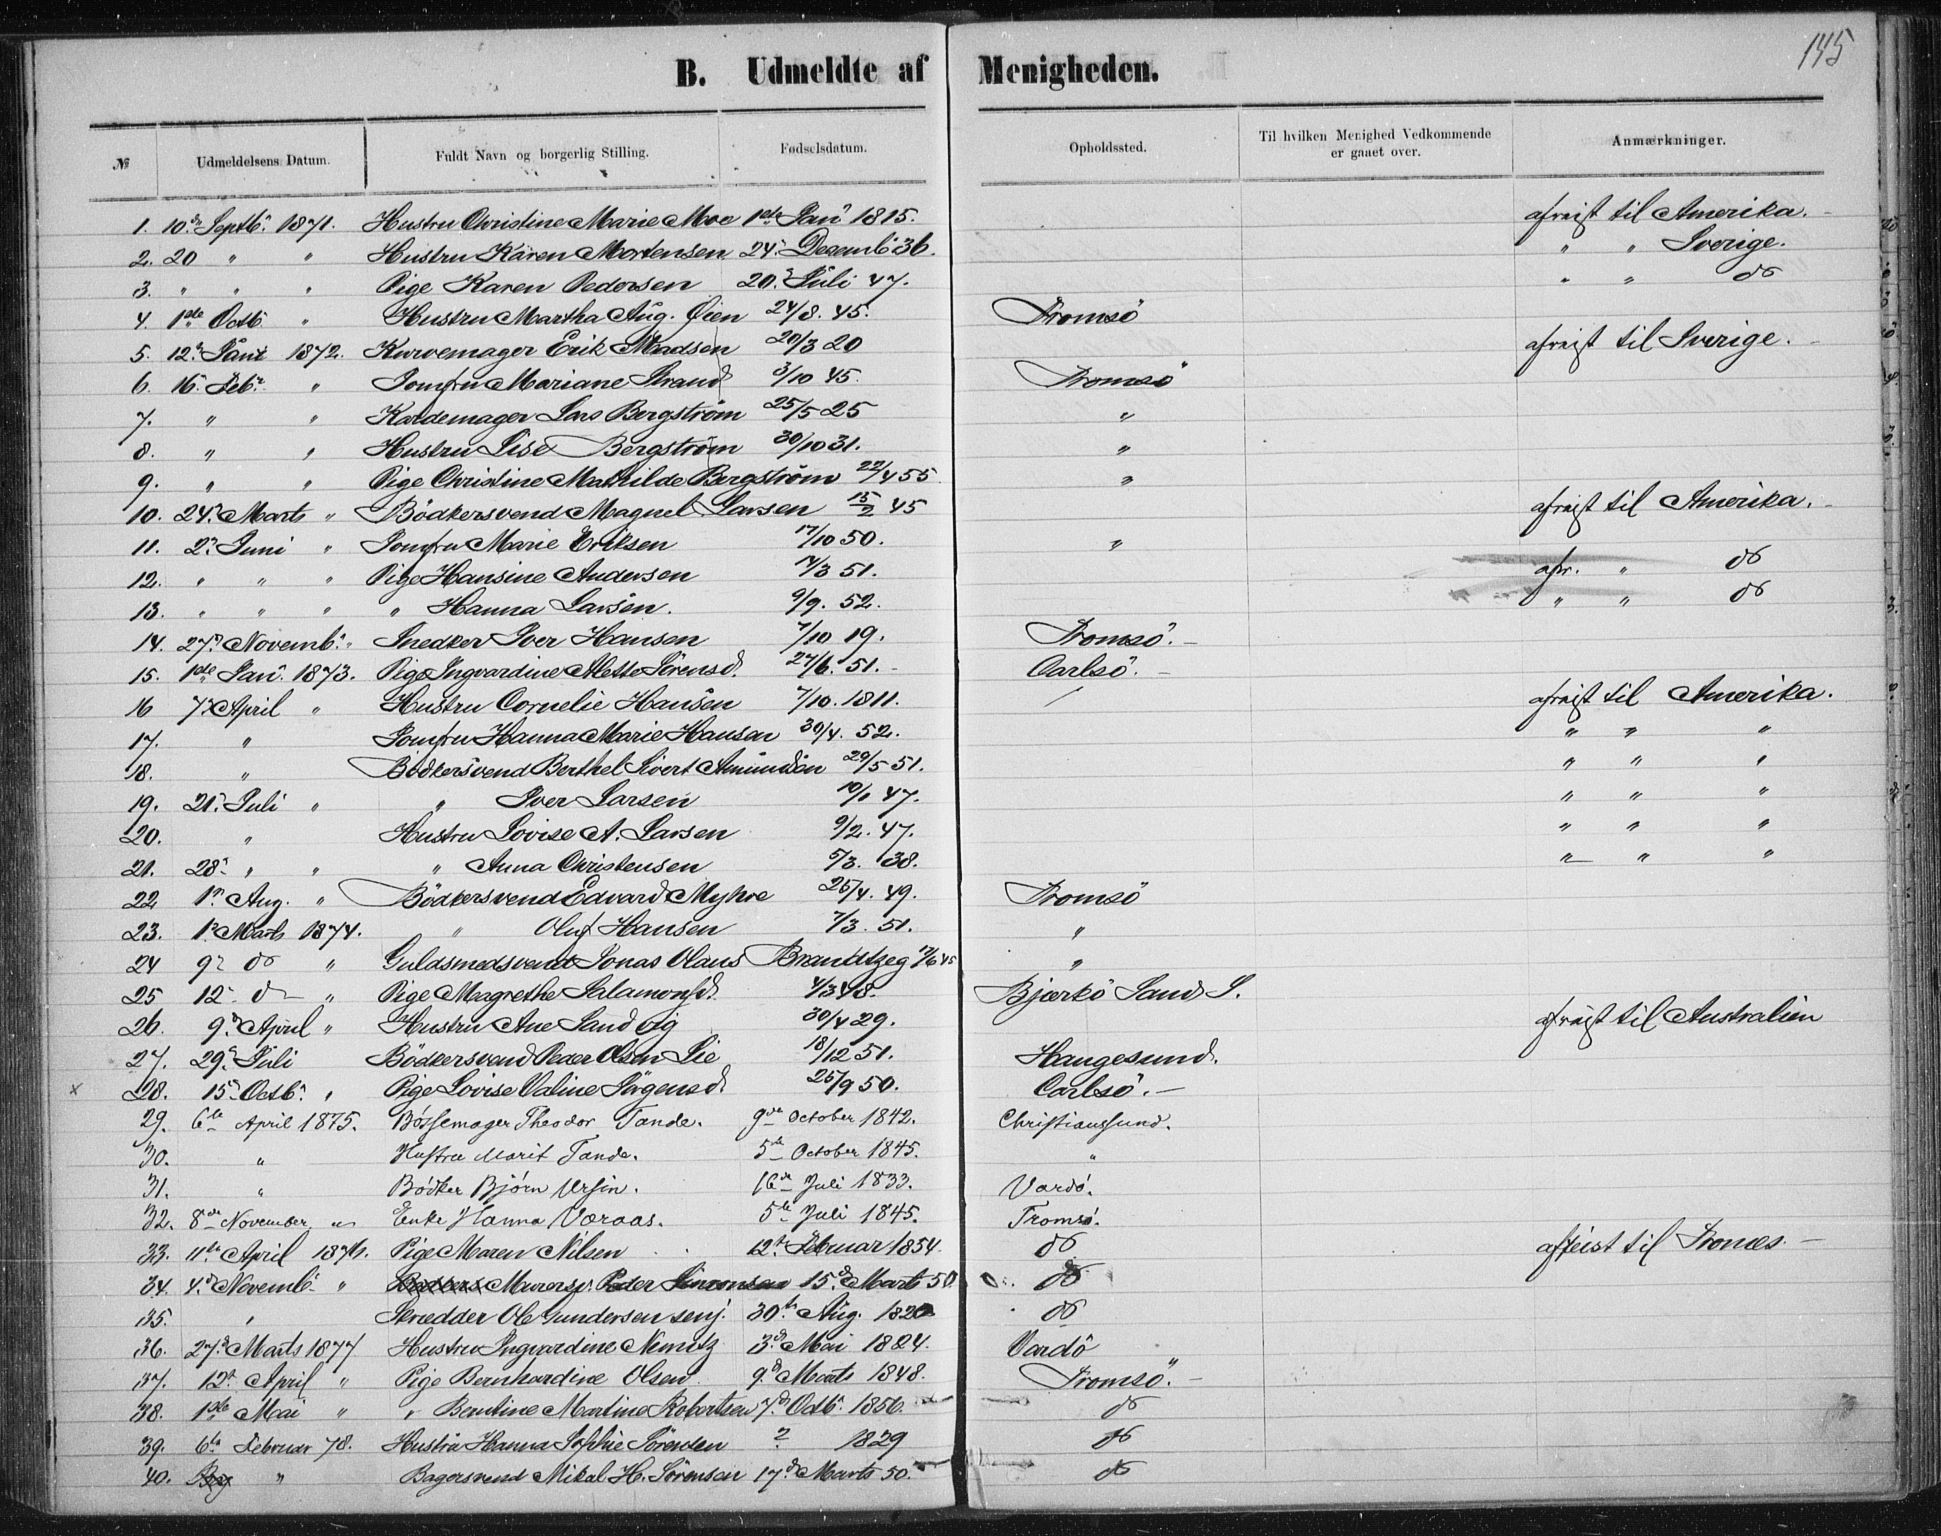 145
B. Udmeldte af Menigheden.
№ Udmeldelsens Datum. Fuldt Navn og borgerlig Stilling. Fødselsdatum. Opholdssted. Til hvilken Menighed Vedkommende er gaaet over. Anmærkninger.
1. 10de Septb: 1871. Hustru Christine Marie Moe 1ste Jan: 1815. afreist til Amerika.
2. 20 " " Hustru Karen Mortensen 24: Decemb 36. " " Sverige.
3. " " " Pige Karen Pedersen 20: Juli 47. " " do
4. 1ste Octb: " Hustru Martha Aug. Øien 24/8. 45. Tromsö
5. 12: Janr 1872. Kurvemager Erik Madsen 20/3 20 afreist til Sverige.
6. 16: Feb: " Jomfru Mariane Strand 3/10 45. Tromsö
7. " " Kardemager Lars Bergström 25/5 25 "
8. " " Hustru Lise Bergström 30/10 31. "
9. " " Pige Christine Mathilde Bergström 22/4 55 "
10. 24: Marts " Bödkersvend Magnel Larsen 15/2 45 afreist til Amerika.
11. 2: Juni " Jomfru Marie Eriksen 17/10 50. "
12. " " " Pige Hansine Andersen 7/3 51. afr. " do
13. " " " " Hanna Larsen. 9/9. 52. " " do
14. 27: Novemb: " Snedker Iver Hansen 7/10 19. Tromsö.
15. 1ste Jan: 1873. Pige Ingvardine Alette Sörensd. 27/6. 51. Carlsö.
16 7: April " Hustru Cornelie Hansen 7/10. 1811. afreist til Amerika.
17. " Jomfru Hanna Marie Hansen 30/4. 52. " " "
18. " Bödkersvend Berthel Sivert Amundsen 29/5 51. " " "
19. 21: Juli " " Iver Larsen 10/1 47. " " "
20. " Hustru Lovise A. Larsen 9/2. 47. " " "
21. 28: " " " Anna Christensen 5/3. 38. " " "
22 1: Aug. " Bödkersvend Edvard Myhre 25/4. 49. Tromsö
23. 1: Marts 1874. " Oluf Hansen 7/3. 51. "
24 9: do " Guldsmedsvend Jonas Olaus Brandtzeg 17/6 45 "
25 12: do " Pige Magrethe Salamonsd. 4/3 48. Bjærkö Sand S.
26. 9: April " Hustru Ane Sandvig 30/4 29. afreist til Australien
27. 29: Juli Bödkersvend Peder Olsen Lie 18/12 51. Haugesund.
x 28. 15: Octb: " Pige Lovise Valine Jörgensd. 25/9 50. Carlsö.
29. 6te April 1875. Bössemager Theodor Tande. 9de October 1842. Christianssund.
30. " Hustru Marit Tande. 5te October 1845. "
31. " Bödker Björn Ursin. 16de Juli 1833. Vardö.
32. 8de November " Enke Hanna Varaas. 5te Juli 1845. Tromsö.
33. 11te April 1876. Pige Maren Nilsen 12te Februar 1854. do afreist til Tronæs.
34. 4: Novemb: " Murersv. Peder Simonsen 15de Marts 50 do
35. " Skrædder Ole Gundersen senj. 30te Aug. 1820 do
36. 27: Marts 1877 Hustru Ingvardine Nemitz 3de Mai 1824. Vardö
37. 12te April " Pige Bernhardine Olsen 9de Marts 1848. Tromsö.
38. 1ste Mai " " Berntine Martine Robertsen 7de Octb: 1856. do
39. 6te Februar 78. Hustru Hanna Sophie Sörensen ? 1829 do
40. Bag " Bagersvend Mikal H. Sörensen 17de Marts 50. do